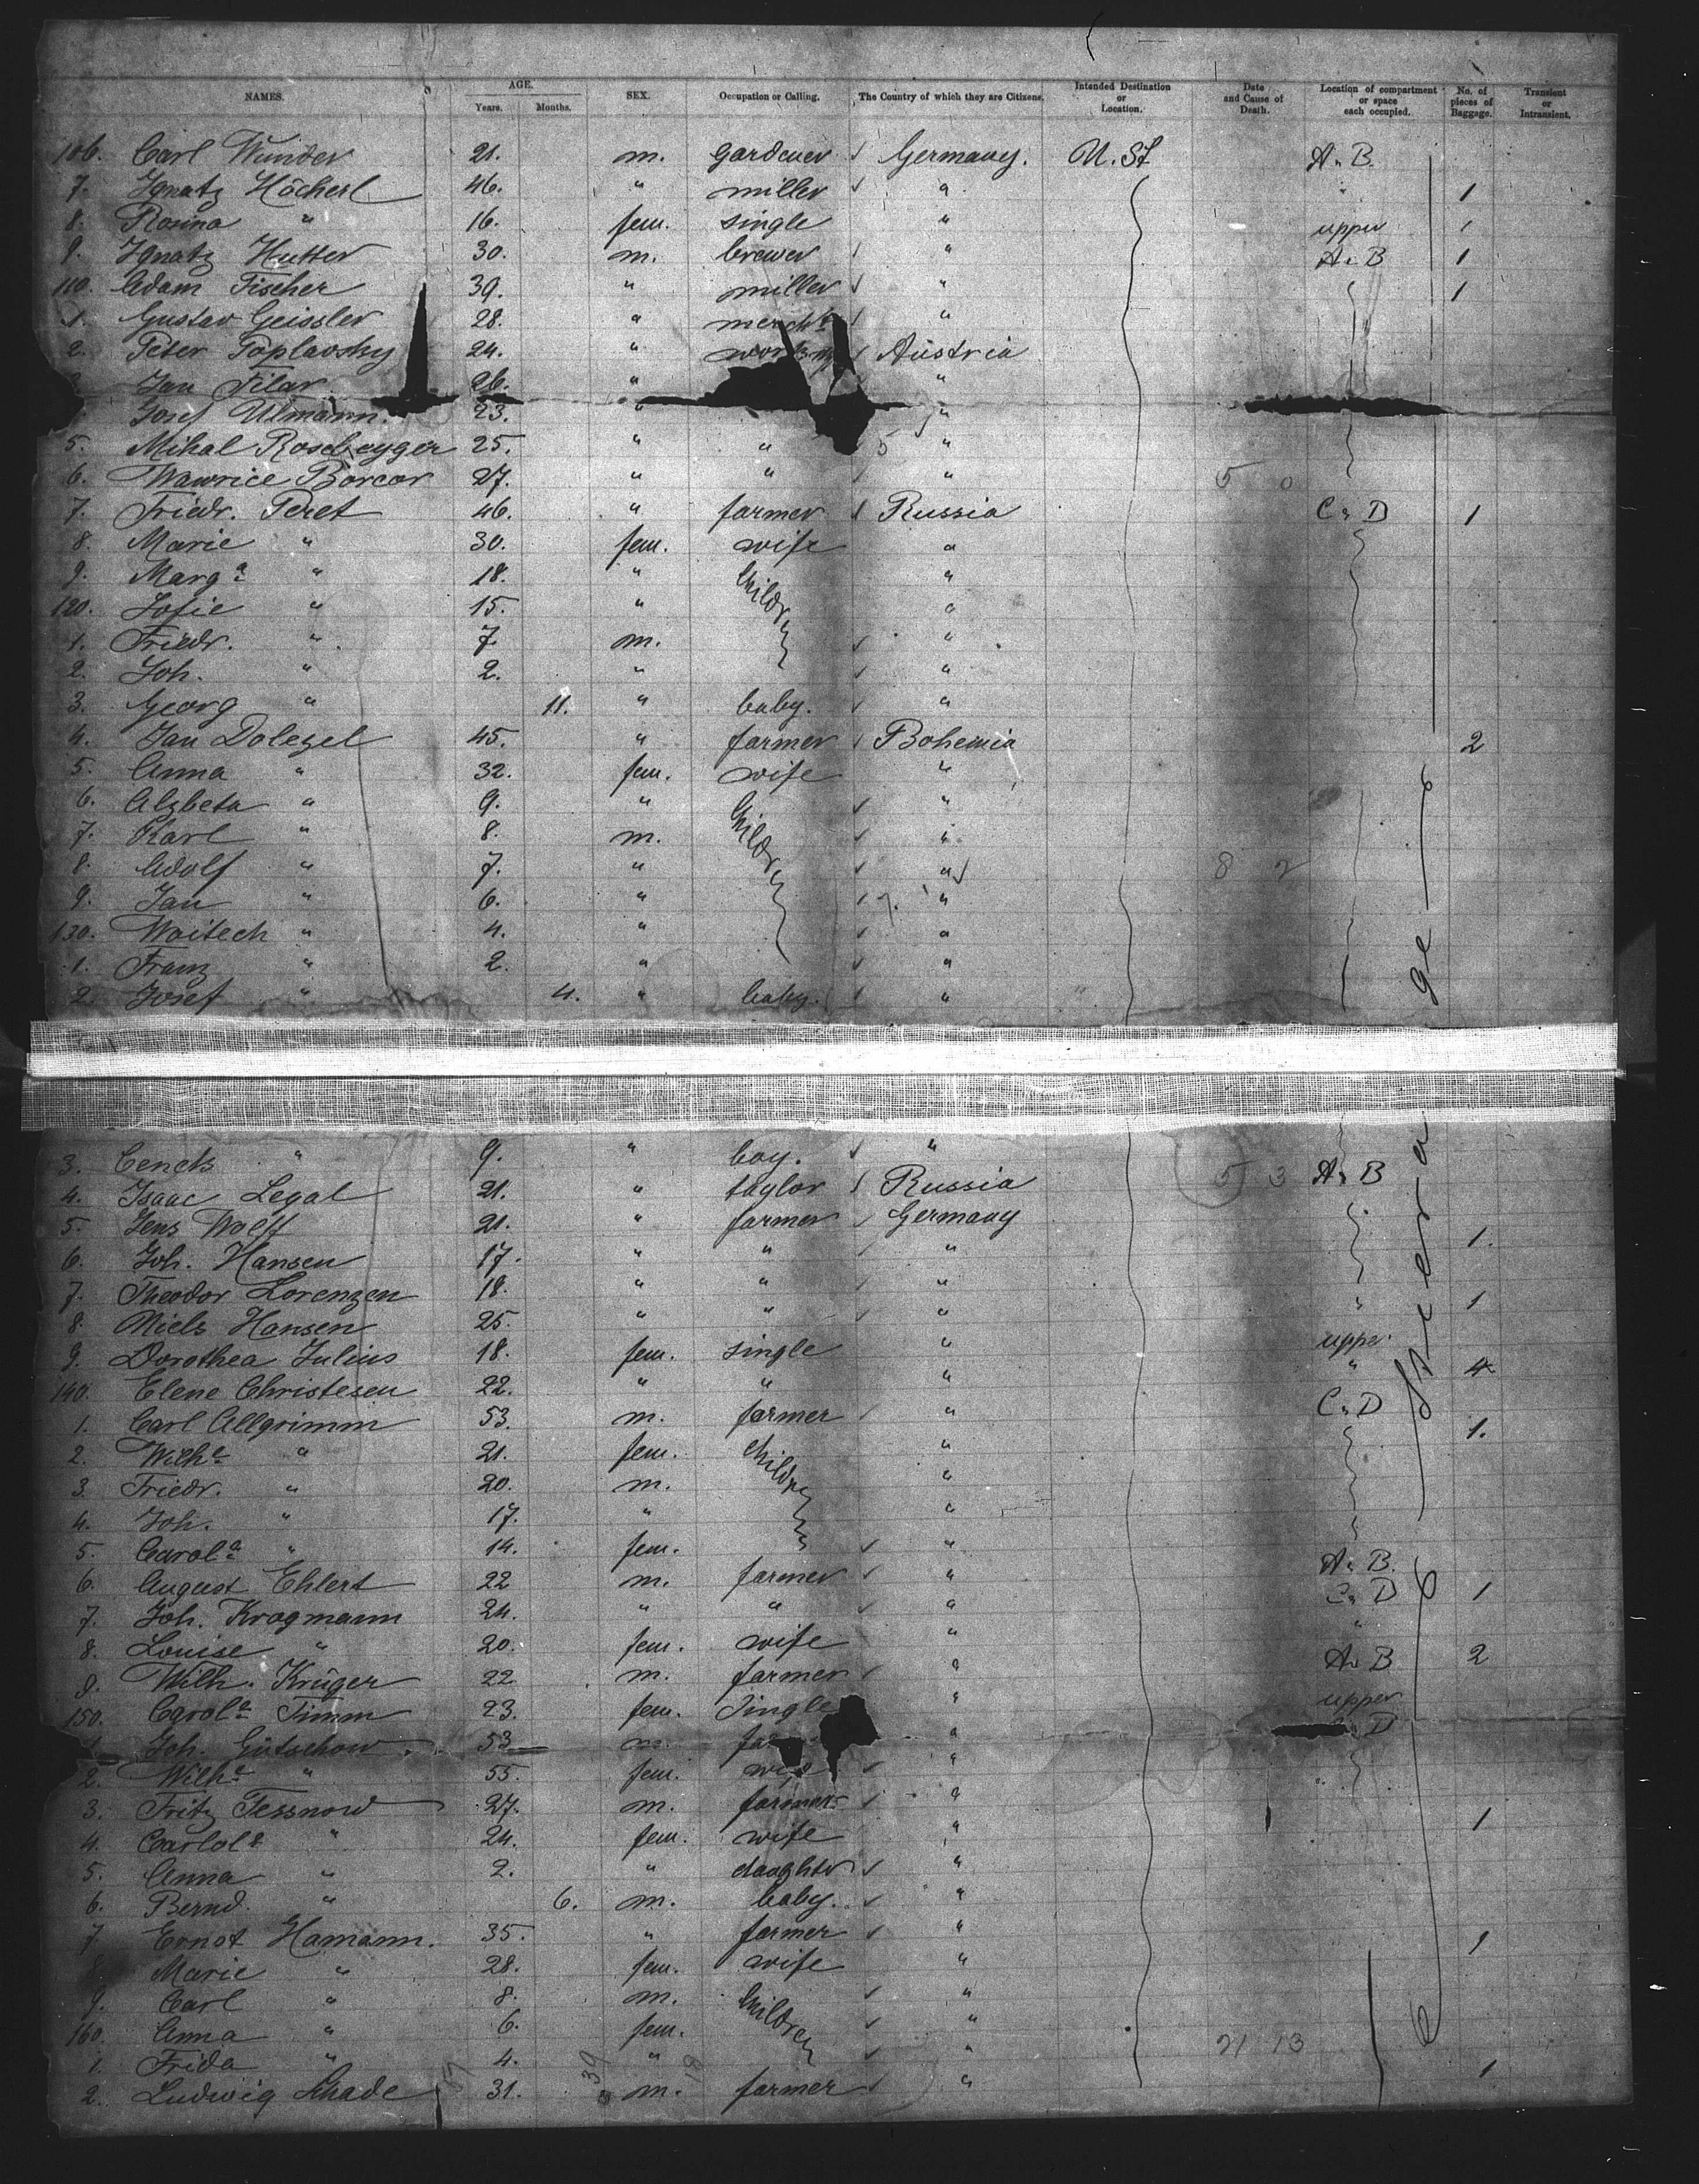 NAMES. AGE. Years. Months. SEX. Occupation or Calling. The Country of which they are Citizens. Intended Destination or Location. Date and Cause of Death. Location of compartment or space each occupied. No. of pieces of Baggage. Transient or Intransient.
106. Carl Wunder 21. m. gardener ✓ Germany. U. St A. B.
7. Ignatz Höcherl 46. " miller ✓ " " 1
8. Rosina " 16. fem. single " upper 1
9. Ignatz Hutter 30. m. brewer ✓ " A. B 1
110. Adam Fischer 39. " miller ✓ " 1
1. Gustav Geissler 28. " mercht ✓ "
2. Peter Poplavsky 24. " ✓ Austria
Jan Filar 26. " "
Josef Ulmann. 23. " "
5. Mihal Rosebeyger 25. " " 5 "
6. Wawrice Borcor 27. " " ✓ " 5 0
7. Friedr. Peret 46. " farmer ✓ Russia C. D 1
8. Marie " 30. fem. wife "
9. Marga " 18. " Children "
120. Sofie " 15. " "
1. Friedr. " 7. m. ✓ "
2. Joh. " 2. " ✓ "
3. Georg " 11. " baby. ✓ "
4. Jan Dolezel 45. " farmer ✓ Bohemia 2
5. Anna " 32. fem. wife "
6. Alzbeta " 9. " Children ✓ "
7. Karl " 8. m. ✓ "
8. Adolf " 7. " ✓ " ✓ 8 2
9. Jan " 6. " ✓ 7. "
130. Woitech " 4. " ✓ "
1. Franz " 2. " ✓ "
2. Josef " 4. " baby. ✓ "
3. Cenek " 9. " boy. ✓ "
4. Isaac Legal 21. " taylor ✓ Russia 5 3 A. B
5. Jens Wolff 21. " farmer ✓ Germany
6. Joh. Hansen 17. " " ✓ " 1.
7. Theodor Lorenzen 18. " " ✓ "
8. Niels Hansen 25. " " ✓ " " 1
9. Dorothea Julius 18. fem. single " upper
140. Elene Christesen 22. " " " " 4
1. Carl Allgrimm 53. m. farmer ✓ " C. D
2. Wilha " 21. fem. Children " 1.
3. Friedr. " 20. m. "
4. Joh. " 17. " "
5. Carola " 14. fem. ✓ "
6. August Ehlert 22 m. farmer ✓ " A. B.
7. Joh. Krogmann 24. " " ✓ " C. D 1
8. Louise " 20. fem. wife " "
9. Wilh. Krüger 22 m. farmer ✓ " A. B 2
150. Carola Timm 23. fem. Single " upper
1. Joh. Gütschow 53 m. " D
2. Wilha " 55. fem. wife ✓ "
3. Fritz Tessnow 27. m. farmer ✓ "
4. Carlola " 24. fem. wife " 1
5. Anna " 2. " daughter ✓ "
6. Bernd. " 6. m. baby. ✓ "
7. Ernst Hamann. 35. " farmer ✓ "
8. Marie " 28. fem. wife " 1
9. Carl " 8. m. Children ✓ "
160. Anna " 6. fem. ✓ "
1. Frida " 4. " ✓ " 21 13
2. Ludwig Schade 31. m. farmer ✓ " 1
Steerage
39
19